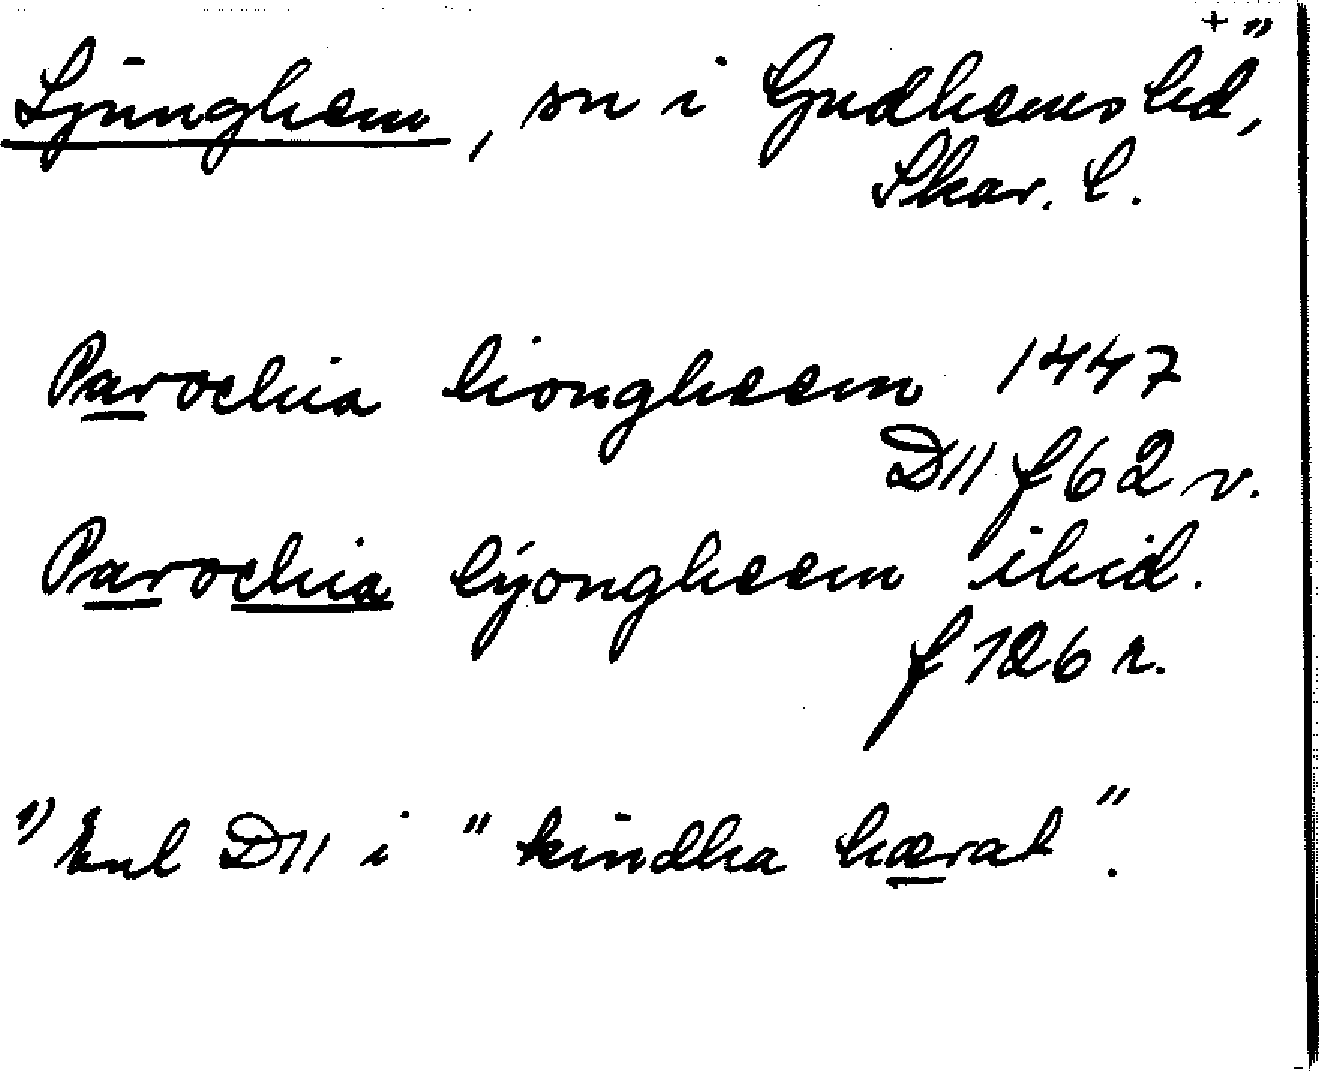 + 1)
Ljunghem, sn i Gudhems hd,
Skar. l.
Parochia liongheem 1447
D11 f 62 v.
Parochia lyongheem ibid.
f 126 r.
1) Enl D11 i "kindha hærat".